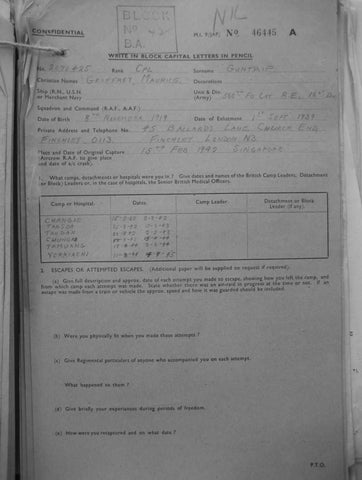 BLOCK
No 42
B.A.
NK
CONFIDENTIAL
M.I. 9/JAP/ No 46445 A
WRITE IN BLOCK CAPITAL LETTERS IN PENCIL
No. Rank CPL Surname GUNTRIP
Christian Names GEOFFREY MAURICE Decorations
Ship (R.N., U.S.N. or Merchant Navy) Unit & Div. (Army) 560th FD COY R.E. 18th Div
Squadron and Command (R.A.F., A.A.F.)
Date of Birth 8th NOVEMBER 1919 Date of Enlistment 1st SEPT 1939
Private Address and Telephone No. 45 BALLARDS LANE CHURCH END,
FINCHLEY 0113. FINCHLEY LONDON N3
Place and Date of Original Capture 15th FEB 1942 SINGAPORE
(Aircrew R.A.F. to give place
and date of a/c crash).
1. What camps, detachments or hospitals were you in ? Give dates and names of the British Camp Leaders, Detachment
or Block Leaders or, in the case of hospitals, the Senior British Medical Officers.
Camp or Hospital. Dates. Camp Leader. Detachment or Block
Leader (if any).
CHANGIE
TARSOA
CHUNGKI
TAMUANG
2. ESCAPES OR ATTEMPTED ESCAPES. (Additional paper will be supplied on request if required).
(a) Give full description and approx. date of each attempt you made to escape, showing how you left the camp, and
from which camp each attempt was made. State whether there was an air-raid in progress at the time or not. If an
escape was made from a train or vehicle the approx. speed and how it was guarded should be included.
(b) Were you physically fit when you made these attempts ?
(c) Give Regimental particulars of anyone who accompanied you on each attempt.
What happened to them ?
(d) Give briefly your experiences during periods of freedom.
(e) How were you recaptured and on what date ?
P.T.O.